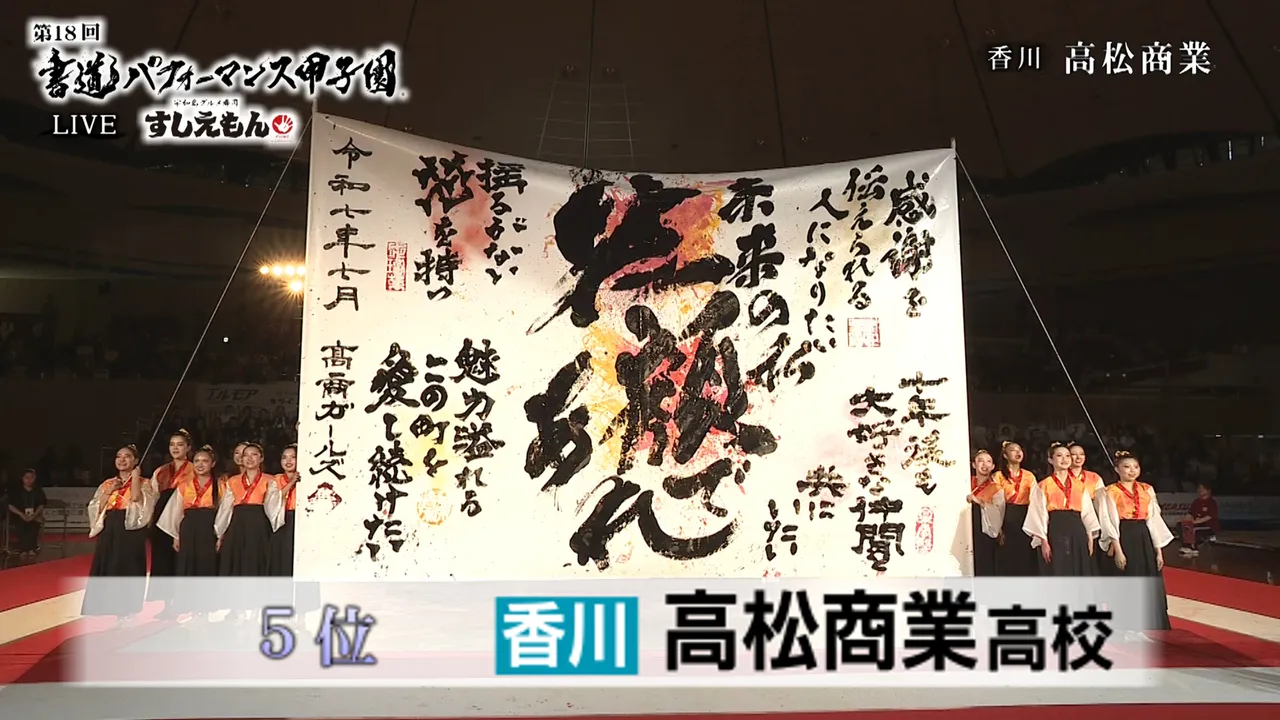 第18回
書道パフォーマンス甲子園
宇和島グルメ寿司
すしえもん
LIVE
香川 高松商業
感謝を
伝えられる
人になりたい
十年後も
大好きな仲間と
共に
いたい
未来の私
揺るぎない
を持つ
魅力溢れる
この町を
愛し続けたい
令和七年七月
高商ガールズ
5位 香川 高松商業高校